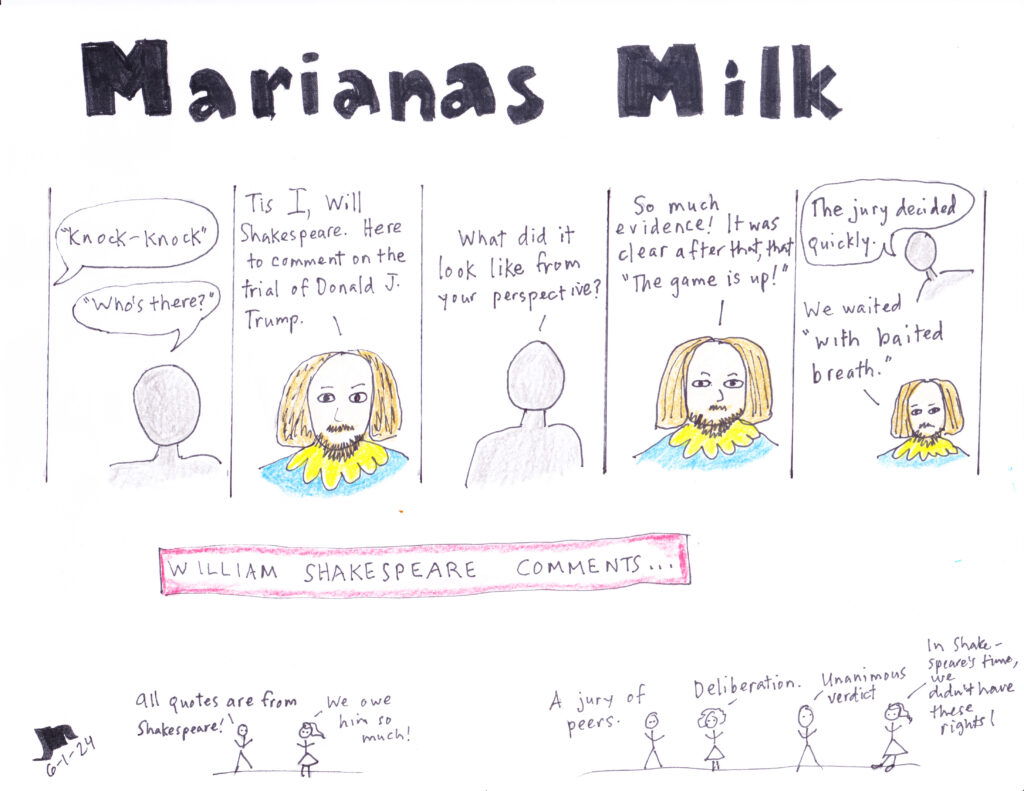 Marianas Milk
"Knock-Knock"
"Who's there?"
Tis I, Will
Shakespeare. Here
to comment on the
trial of Donald J.
Trump.
What did it
look like from
your perspective?
So much
evidence! It was
clear after that, that
"The game is up!"
The jury decided
quickly.
We waited
"with baited
breath."
WILLIAM SHAKESPEARE COMMENTS...
All quotes are from
Shakespeare!
We owe
him so
much!
A jury of
peers.
Deliberation.
Unanimous
verdict
In Shake-
speare's time,
we
didn't have
these
rights!
6-1-24